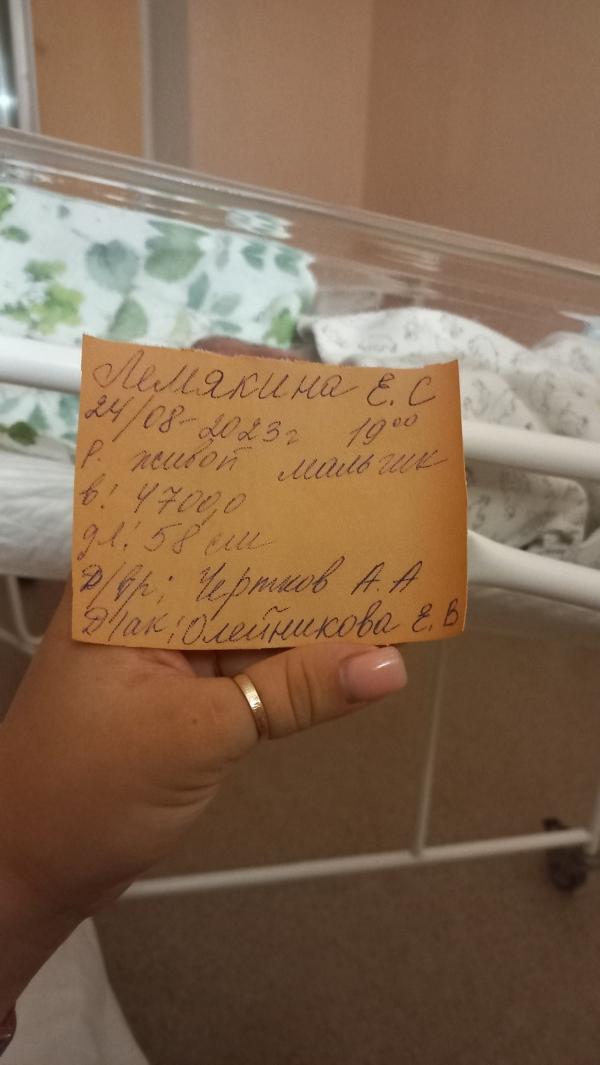 Лемякина Е. С
24/08-2023г 19⁰⁰
р. живой мальчик
в: 4700,0
дл: 58 см
Д/вр; Чертков А. А
Д/ак; Олейникова Е. В